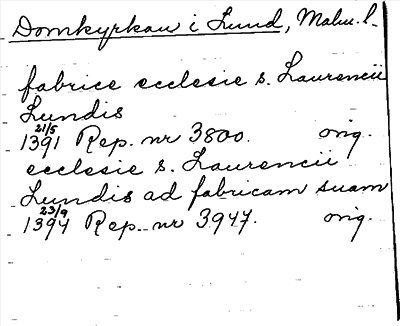 Domkyrkan i Lund, Malm. l.
fabrice ecclesie s. Laurencii
Lundis
21/5
1391 Rep. nr 3800. orig.
ecclesie s. Laurencii
Lundis ad fabricam suam
23/9
1394 Rep. nr 3947. orig.